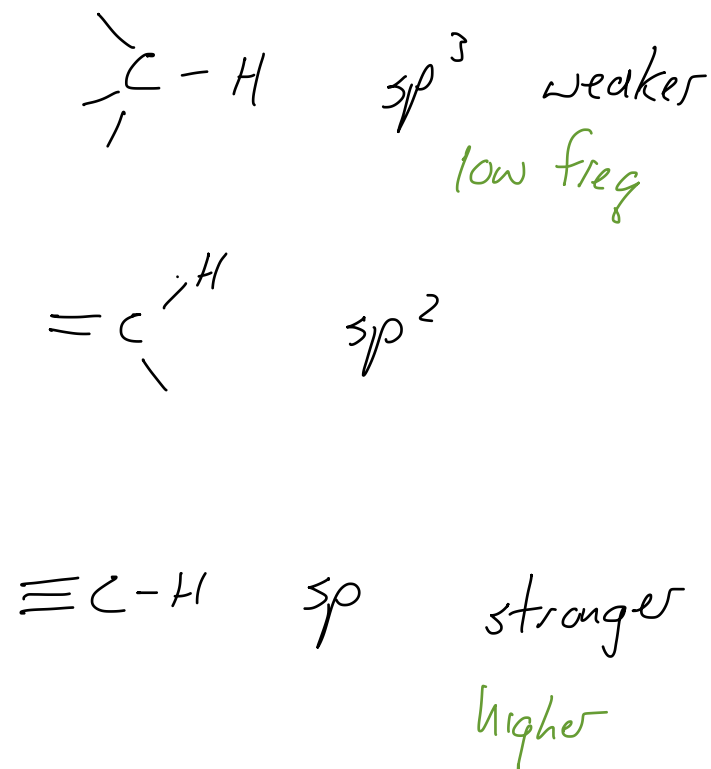 C - H sp³ weaker
low freq
H
= C sp²
≡ C - H sp stronger
higher